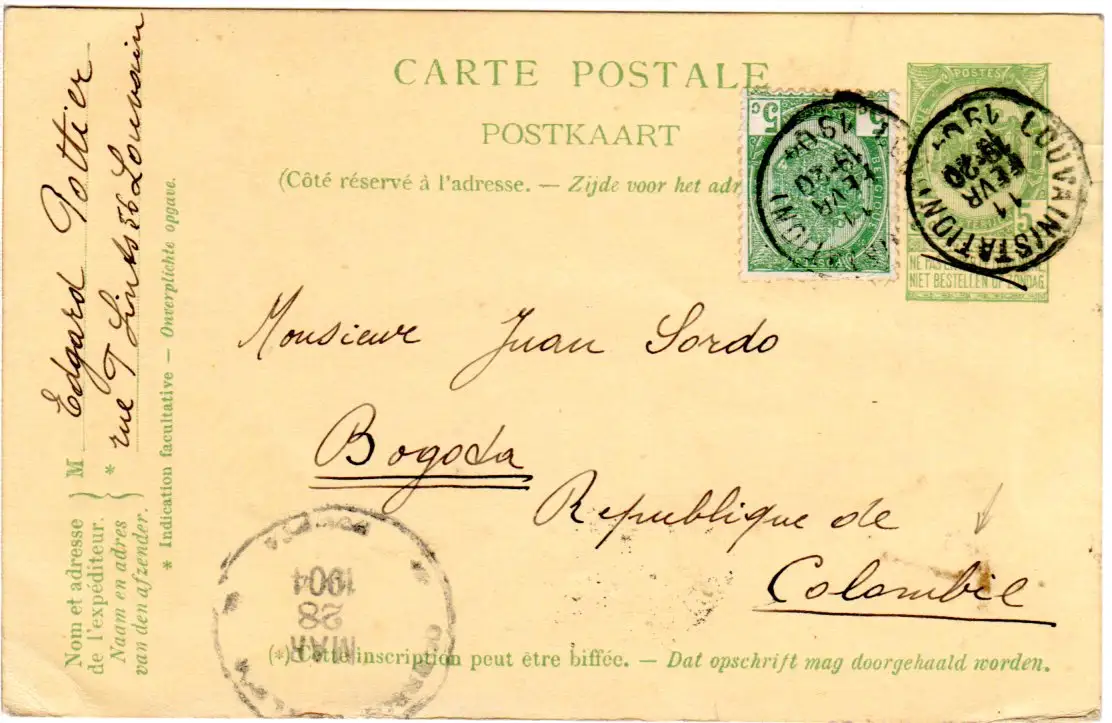 CARTE POSTALE
POSTKAART
(Côté réservé à l'adresse. — Zijde voor het adr
5c
5c
BELGIQUE
1904
11
FEVR
POSTES
LOUVAIN (STATION)
11
FEVR
20
5
NIET BESTELLEN OP ZONDAG
Monsieur Juan Sordo
Bogota
Republique de
Colombie
Nom et adresse
de l'expéditeur.
Naam en adres
van den afzender.
M Edgard Pottier
* rue
56 Louvain
* Indication facultative — Onverplichte opgave.
1904
28
MAR
(*) Cette inscription peut être biffée. — Dat opschrift mag doorgehaald worden.